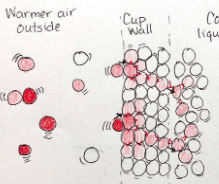 Warmer air
outside
Cup
wall